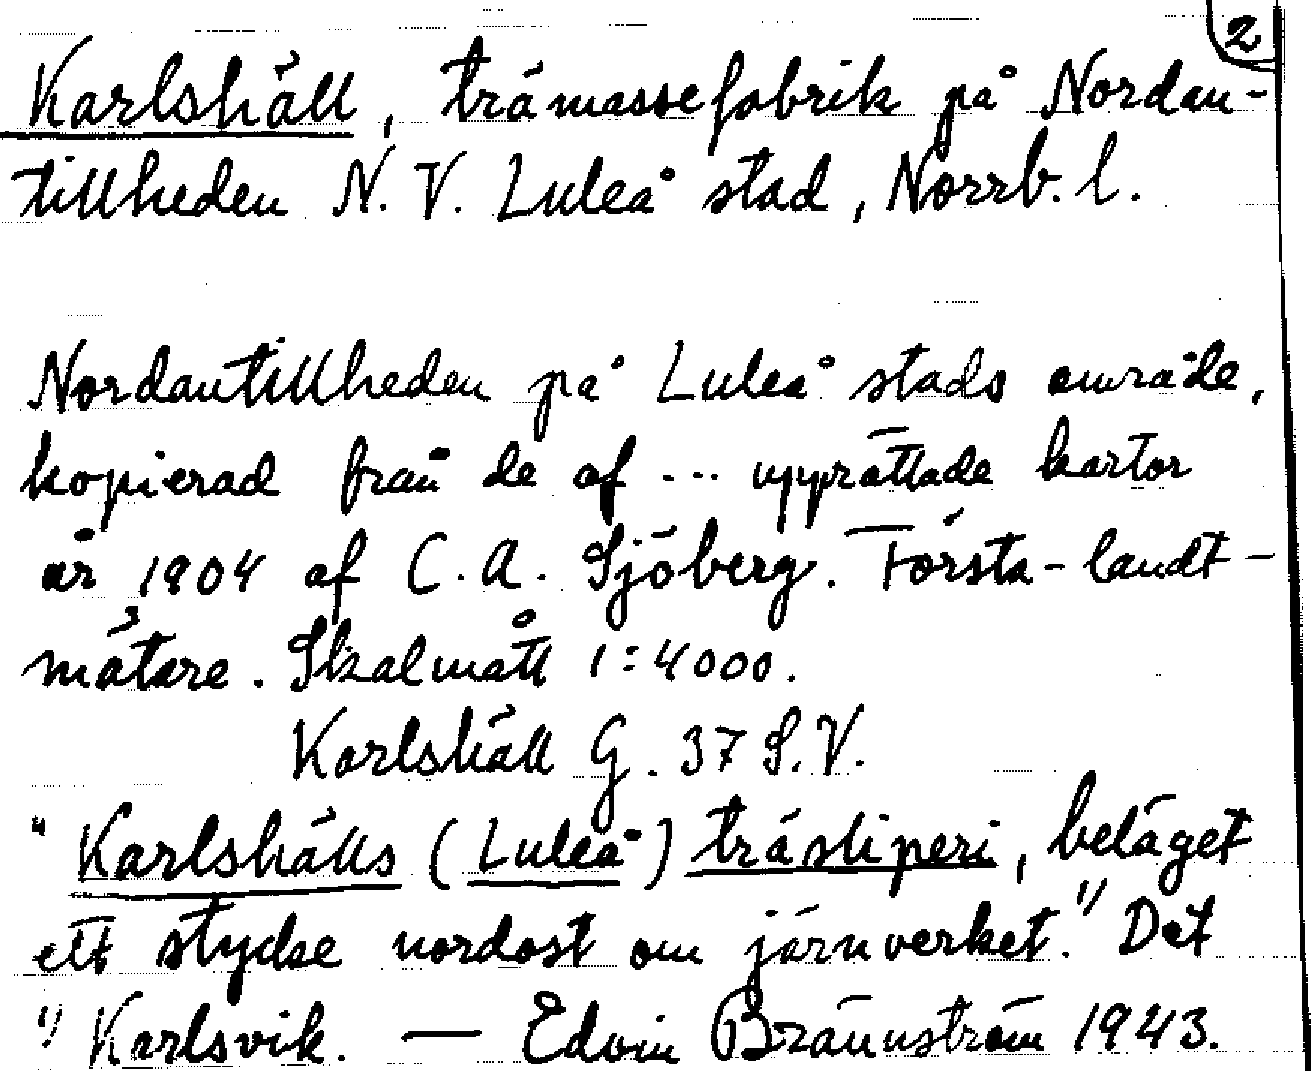 2
Karlshäll, trämassefabrik på Nordan-
tillheden N. V. Luleå stad, Norrb. l.
Nordantillheden på Luleå stads område,
kopierad från de af ... upprättade kartor
år 1904 af C. A. Sjöberg. Första-landt-
mätare. Skalmått 1:4000.
Karlshäll G. 37 S.V.
"Karlshälls (Luleå) träsliperi, beläget
ett stycke nordost om järnverket." 1) Det
1) Karlsvik. — Edvin Brännström 1943.